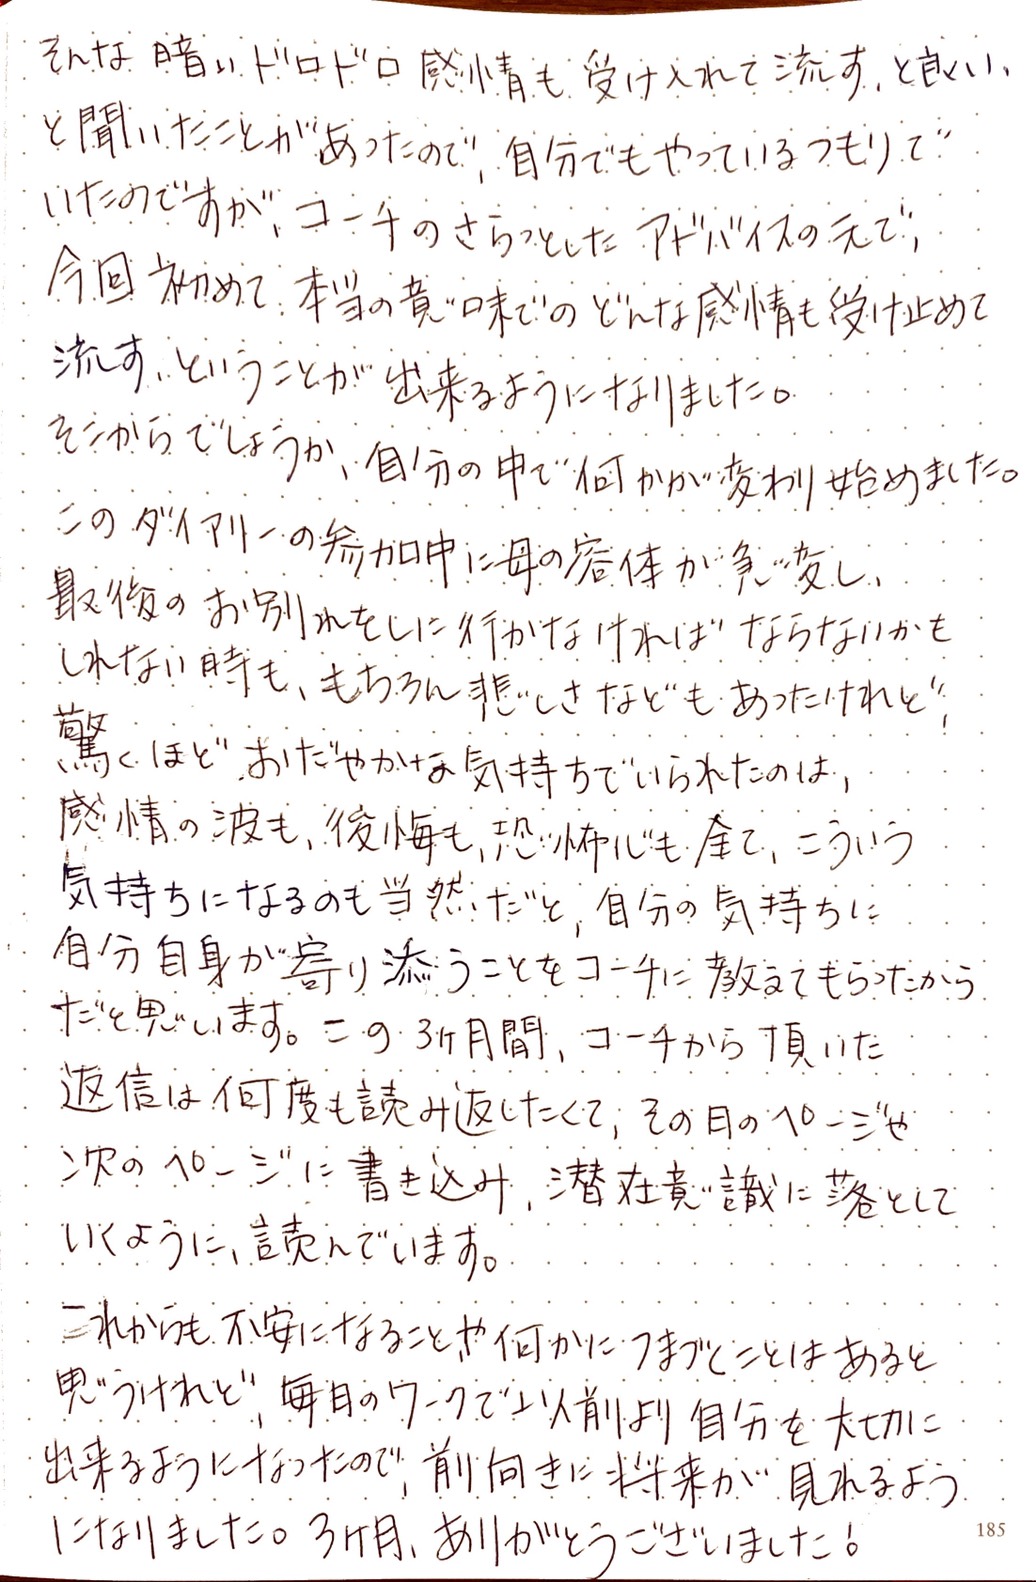 そんな暗いドロドロ感情も受け入れて流す、と良い、
と聞いたことがあったので、自分でもやっているつもりで
いたのですが、コーチのさらっとしたアドバイスの元で、
今回初めて本当の意味でのどんな感情も受け止めて
流す、ということが出来るようになりました。
そこからでしょうか、自分の中で何かが変わり始めました。
このダイアリーの参加中に母の容体が急変し、
最後のお別れをしに行かなければならないかも
しれない時も、もちろん悲しさなどもあったけれど、
驚くほどおだやかな気持ちでいられたのは、
感情の波も、後悔も、恐怖心も全て、こういう
気持ちになるのも当然だと、自分の気持ちに
自分自身が寄り添うことをコーチに教えてもらったから
だと思います。この3ヶ月間、コーチから頂いた
返信は何度も読み返したくて、その日のページや
次のページに書き込み、潜在意識に落として
いくように、読んでいます。
これからも不安になることや何かにつまづくことはあると
思うけれど、毎日のワークで以前より自分を大切に
出来るようになったので、前向きに将来が見れるよう
になりました。3ヶ月、ありがとうございました！
185